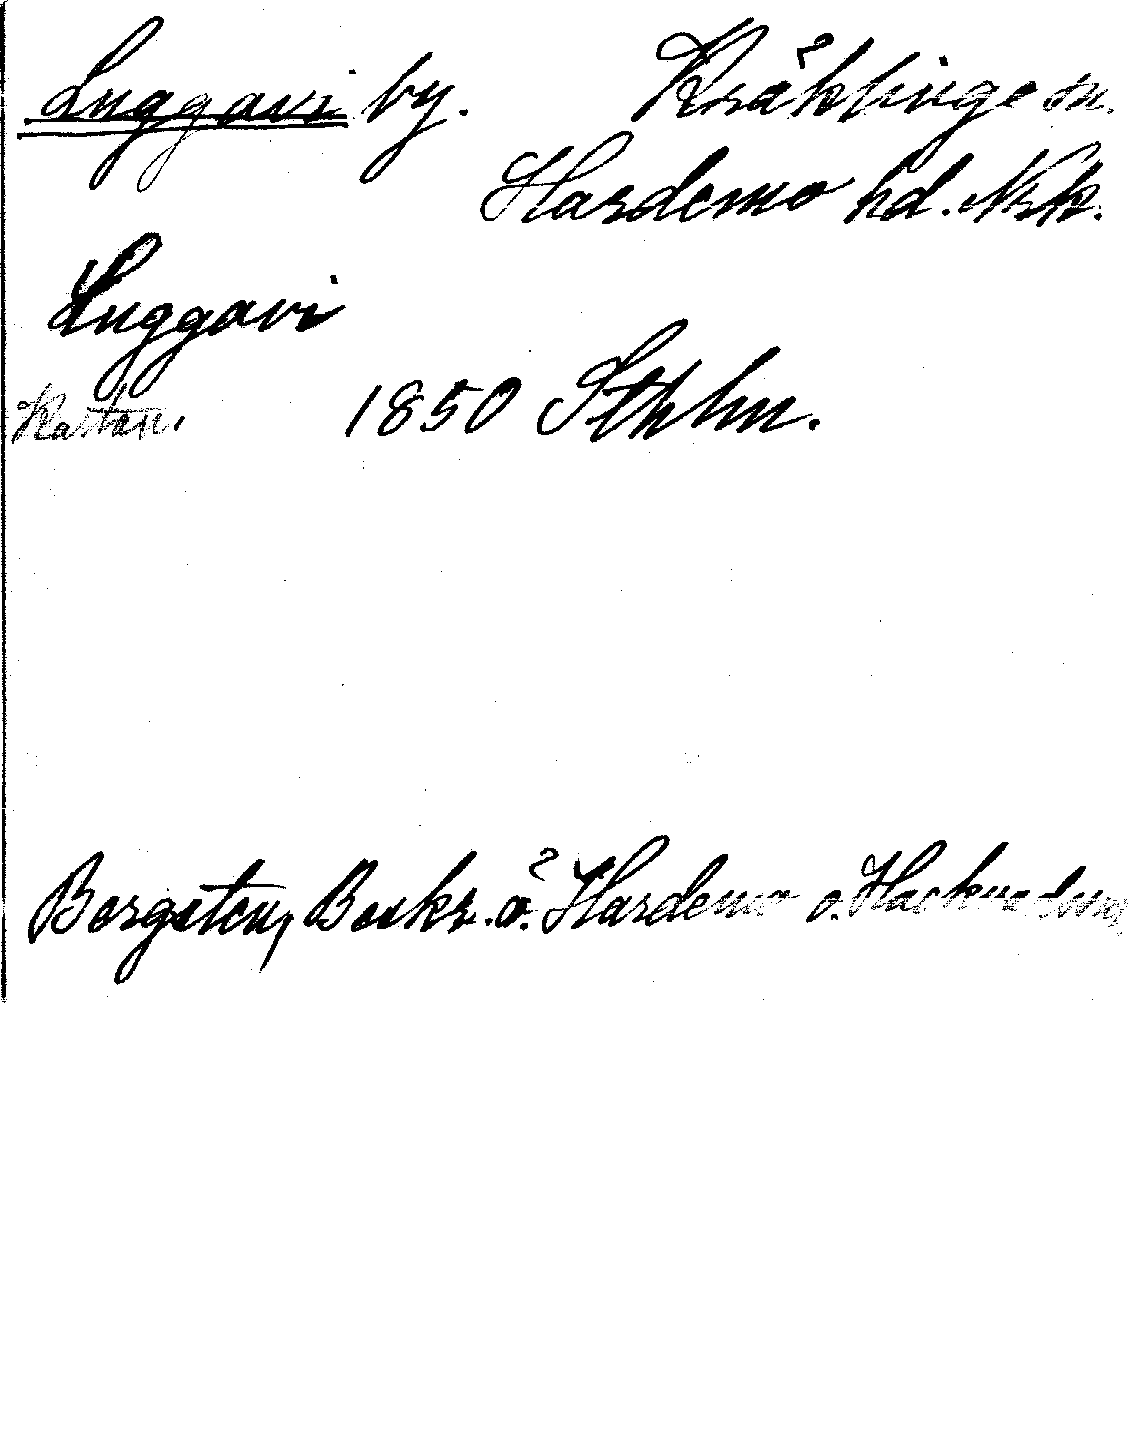 Luggavi by. Kräklinge sn.
Hardemo hd. Nrk.
Luggavi
Kartan. 1850 Sthlm.
Borgsten, Beskr. ö. Hardemo o. Hackvad sn